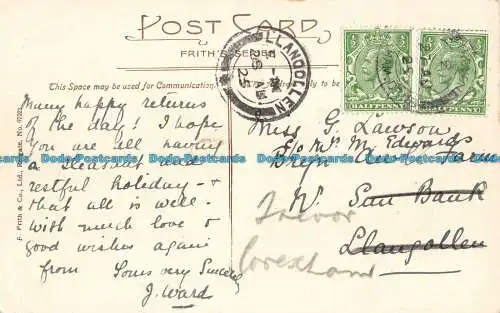 POST CARD
FRITH'S SERIES
This Space may be used for Communication.
F. Frith & Co., Ltd., Reigate. No.
Many happy returns
of the day! I hope
you are all having
a pleasant and
restful holiday - &
that all is well -
with much love &
good wishes again
from Yours very Sincerely
J. Ward
LLANGOLLEN
AM
25
HALFPENNY
HALFPENNY
Miss G. Lawson
c/o Mr M. Edwards
Bryn
Sun Bank
Llangollen
Trevor
Dodo-Postcards Dodo-Postcards Dodo-Postcards Dodo-Postcards